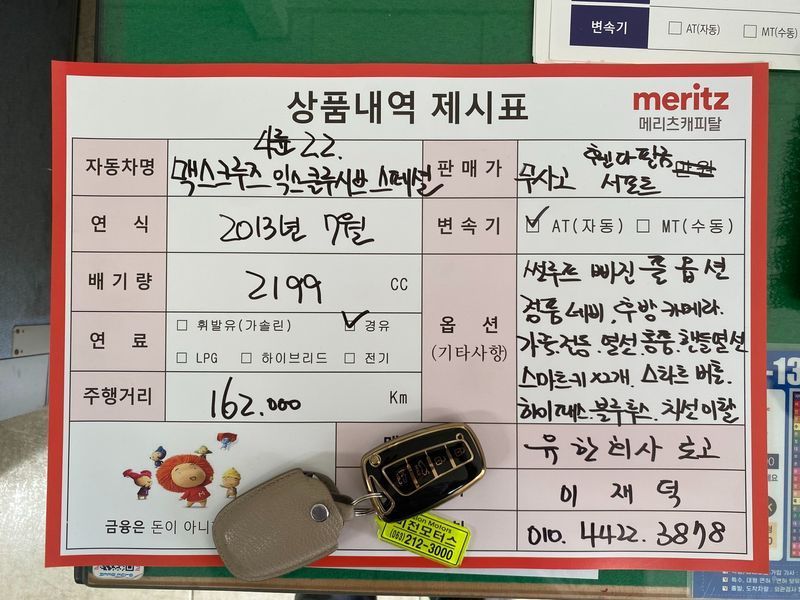 변속기 □ AT(자동) □ MT(수동)
상품내역 제시표
meritz
메리츠캐피탈
자동차명
4륜 2.2.
맥스크루즈 익스클루시브 스페셜
판매가
무사고 휀다판금 만원
서포트
연 식
2013년 7월
변속기
☑ AT(자동) □ MT(수동)
배기량
2199 CC
옵 션
(기타사항)
썬루프 빠진 풀옵션
정품네비, 후방카메라.
가죽.전동.열선.통풍.핸들열선
스마트키x2개. 스타트버튼.
하이패스.블루투스.차선이탈
연 료
□ 휘발유(가솔린) ☑ 경유
□ LPG □ 하이브리드 □ 전기
주행거리
162.000 Km
유한회사 로고
이재덕
010. 4422. 3878
금융은 돈이 아니
Motors
전모터스
(063)212-3000
-13